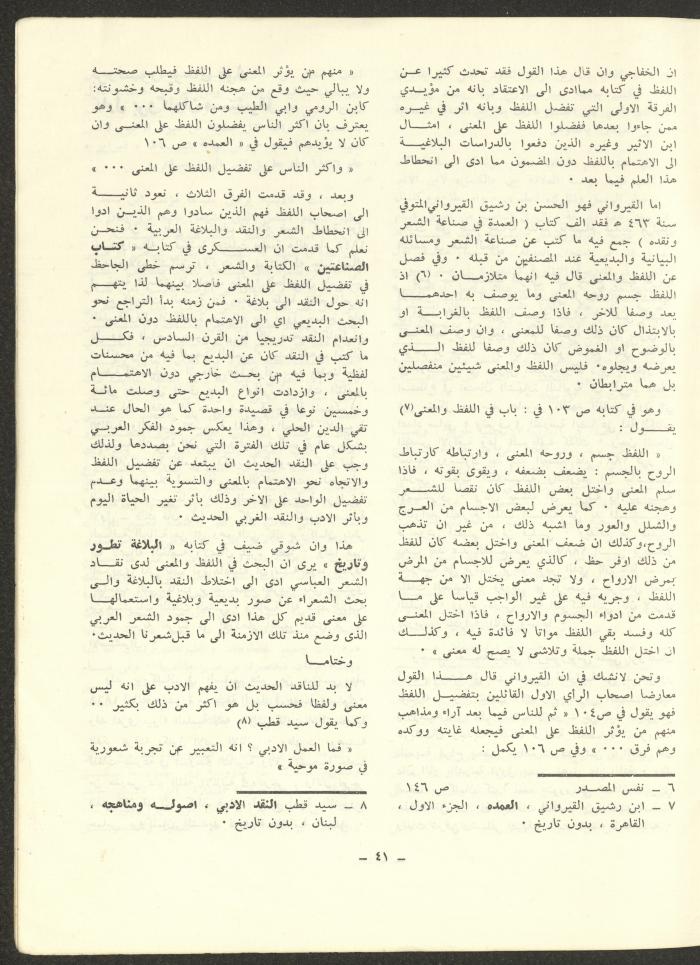 ان الخفاجي وان قال هذا القول فقد تحدث كثيرا عن
اللفظ في كتابه مماادى الى الاعتقاد بانه من مؤيدي
الفرقة الاولى التي تفضل اللفظ وبانه اثر في غيره
ممن جاءوا بعدها ففضلوا اللفظ على المعنى ، امثال
ابن الاثير وغيره الذين دفعوا بالدراسات البلاغية
الى الاهتمام باللفظ دون المضمون مما ادى الى انحطاط
هذا العلم فيما بعد ٠
اما القيرواني فهو الحسن بن رشيق القيروانيالمتوفي
سنة ٤٦٣ هـ فقد الف كتاب ( العمدة في صناعة الشعر
ونقده ) جمع فيه ما كتب عن صناعة الشعر ومسائله
البيانية والبديعية عند المصنفين من قبله ٠ وفي فصل
عن اللفظ والمعنى قال فيه انهما متلازمان ٠ (٦) اذ
اللفظ جسم روحه المعنى وما يوصف به احدهما
يعد وصفا للاخر ، فاذا وصف اللفظ بالغرابة او
بالابتذال كان ذلك وصفا للمعنى ، وان وصف المعنى
بالوضوح او الغموض كان ذلك وصفا للفظ الذي
يعرضه ويجلوه٠ فليس اللفظ والمعنى شيئين منفصلين
بل هما مترابطان ٠
وهو في كتابه ص ١٠٣ في : باب في اللفظ والمعنى(٧)
يقول :
« اللفظ جسم ، وروحه المعنى ، وارتباطه كارتباط
الروح بالجسم : يضعف بضعفه ، ويقوى بقوته ، فاذا
سلم المعنى واختل بعض اللفظ كان نقصا للشعر
وهجنه عليه ٠ كما يعرض لبعض الاجسام من العرج
والشلل والعور وما اشبه ذلك ، من غير ان تذهب
الروح،وكذلك ان ضعف المعنى واختل بعضه كان للفظ
من ذلك اوفر حظ ، كالذي يعرض للاجسام من المرض
بمرض الارواح ، ولا تجد معنى يختل الا من جهة
اللفظ ، وجريه فيه على غير الواجب قياسا على ما
قدمت من ادواء الجسوم والارواح ، فاذا اختل المعنى
كله وفسد بقي اللفظ مواتا لا فائدة فيه ، وكذلك
ان اختل اللفظ جملة وتلاشى لا يصح له معنى » ٠
ونحن لانشك في ان القيرواني قال هذا القول
معارضا اصحاب الرأي الاول القائلين بتفضيل اللفظ
فهو يقول في ص١٠٤ « ثم للناس فيما بعد آراء ومذاهب
منهم من يؤثر اللفظ على المعنى فيجعله غايته ووكده
وهم فرق ٠٠٠ » وفي ص ١٠٦ يكمل :
٦ ـ نفس المصدر ص ١٤٦
٧ ـ ابن رشيق القيرواني ، العمده ، الجزء الاول ،
القاهرة ، بدون تاريخ ٠
« منهم من يؤثر المعنى على اللفظ فيطلب صحته
ولا يبالي حيث وقع من هجنه اللفظ وقبحه وخشونته:
كابن الرومي وابي الطيب ومن شاكلهما ٠٠٠ » وهو
يعترف بان اكثر الناس يفضلون اللفظ على المعنى وان
كان لا يؤيدهم فيقول في « العمده » ص ١٠٦
« واكثر الناس على تفضيل اللفظ على المعنى ٠٠٠ »
وبعد ، وقد قدمت الفرق الثلاث ، نعود ثانية
الى اصحاب اللفظ فهم الذين سادوا وهم الذين ادوا
الى انحطاط الشعر والنقد والبلاغة العربية ٠ فنحن
نعلم كما قدمت ان العسكرى في كتابه « كتاب
الصناعتين » الكتابة والشعر ، ترسم خطى الجاحظ
في تفضيل اللفظ على المعنى فاصلا بينهما لذا يتهم
انه حول النقد الى بلاغة ٠ فمن زمنه بدأ التراجع نحو
البحث البديعي اي الى الاهتمام باللفظ دون المعنى ٠
وانعدام النقد تدريجيا من القرن السادس ، فكل
ما كتب في النقد كان عن البديع بما فيه من محسنات
لفظية وبما فيه من بحث خارجي دون الاهتمام
بالمعنى ، وازدادت انواع البديع حتى وصلت مائة
وخمسين نوعا في قصيدة واحدة كما هو الحال عند
تقي الدين الحلي ، وهذا يعكس جمود الفكر العربي
بشكل عام في تلك الفترة التي نحن بصددها ولذلك
وجب على النقد الحديث ان يبتعد عن تفضيل اللفظ
والاتجاه نحو الاهتمام بالمعنى والتسوية بينهما وعدم
تفضيل الواحد على الاخر وذلك بأثر تغير الحياة اليوم
وبأثر الادب والنقد الغربي الحديث ٠
هذا وان شوقي ضيف في كتابه « البلاغة تطور
وتاريخ » يرى ان البحث في اللفظ والمعنى لدى نقاد
الشعر العباسي ادى الى اختلاط النقد بالبلاغة والى
بحث الشعراء عن صور بديعية وبلاغية واستعمالها
على معنى قديم كل هذا ادى الى جمود الشعر العربي
الذى وضع منذ تلك الازمنة الى ما قبل‌شعرنا الحديث٠
وختاما
لا بد للناقد الحديث ان يفهم الادب على انه ليس
معنى ولفظا فحسب بل هو اكثر من ذلك بكثير ٠٠
وكما يقول سيد قطب (٨)
« فما العمل الادبي ؟ انه التعبير عن تجربة شعورية
في صورة موحية »
٨ ـ سيد قطب النقد الادبي ، اصوله ومناهجه ،
لبنان ، بدون تاريخ ٠
ـ ٤١ ـ